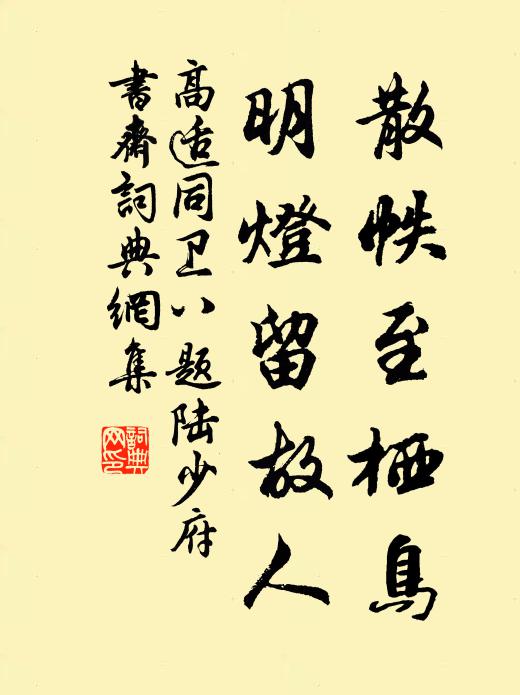 散帙至栖鳥
明燈留故人
高适同卫八题陆少府
書齋詞典網集
詞典
网印